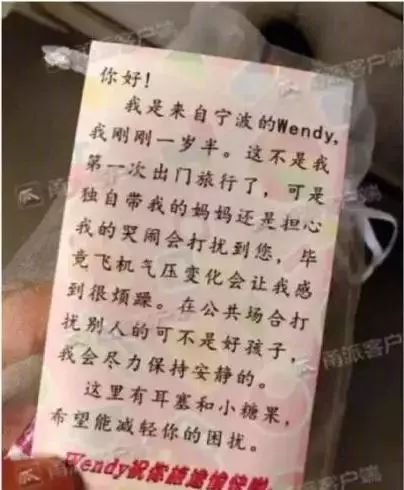 你好!
我是来自宁波的Wendy,
我刚刚一岁半。这不是我
第一次出门旅行了，可是
独自带我的妈妈还是担心
我的哭闹会打扰到您，毕
竟飞机气压变化会让我感
到很烦躁。在公共场合打
扰别人的可不是好孩子，
我会尽力保持安静的。
这里有耳塞和小糖果，
希望能减轻你的困扰。
Wendy祝你旅途愉快
甬派客户端
甬派客户端
甬派客户端